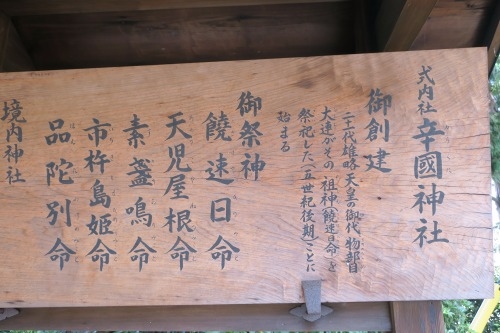 式内社 辛國神社
御創建
二十一代雄略天皇の御代 物部目
大連がその祖神(饒速日命)を
祭祀した(五世紀後期)ことに
始まる
御祭神
饒速日命
天児屋根命
素盞鳴命
市杵島姫命
品陀別命
境内神社